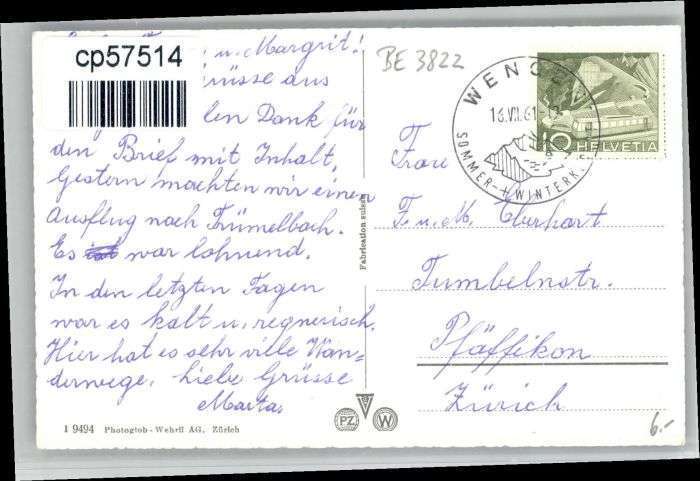 cp57514
u. Margrit!
Grüsse aus
len Dank für
den Brief mit Inhalt,
Gestern machten wir einen
Ausflug nach Trümelbach.
Es war lohnend.
In den letzten Tagen
war es kalt u. regnerisch.
Hier hat es sehr viele Wan=
derwege. Liebe Grüsse
Marta
1 9494 Photoglob - Wehrli AG, Zürich
Fabrication suisse
PZ
W
BE 3822
WENGEN
16.VII.61-12
SOMMER- + WINTERK
10
HELVETIA
Frau
F. u. M. Eberhart
Tumbelnstr.
Pfäffikon
Zürich
6.-